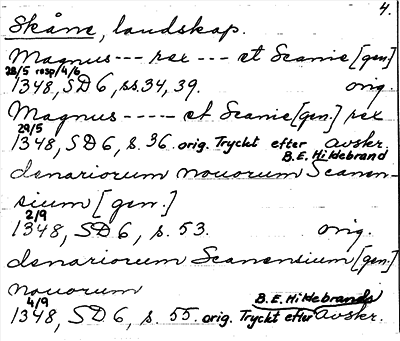 4.
Skåne, landskap.
Magnus --- rex --- et Scanie [gen.]
28/5 resp/4/6
1348, SD 6, ss. 34, 39. orig.
Magnus ----- et Scanie [gen.] rex
29/5
1348, SD 6, s. 36 orig. Tryckt efter Avskr.
B.E. Hildebrand
denariorum nouorum Scanen-
sium [gen.]
2/9
1348, SD 6, s. 53. orig.
denariorum Scanensium [gen.]
nouorum
4/9 B.E. Hildebrands
1348, SD 6, s. 55. orig. Tryckt efter Avskr.